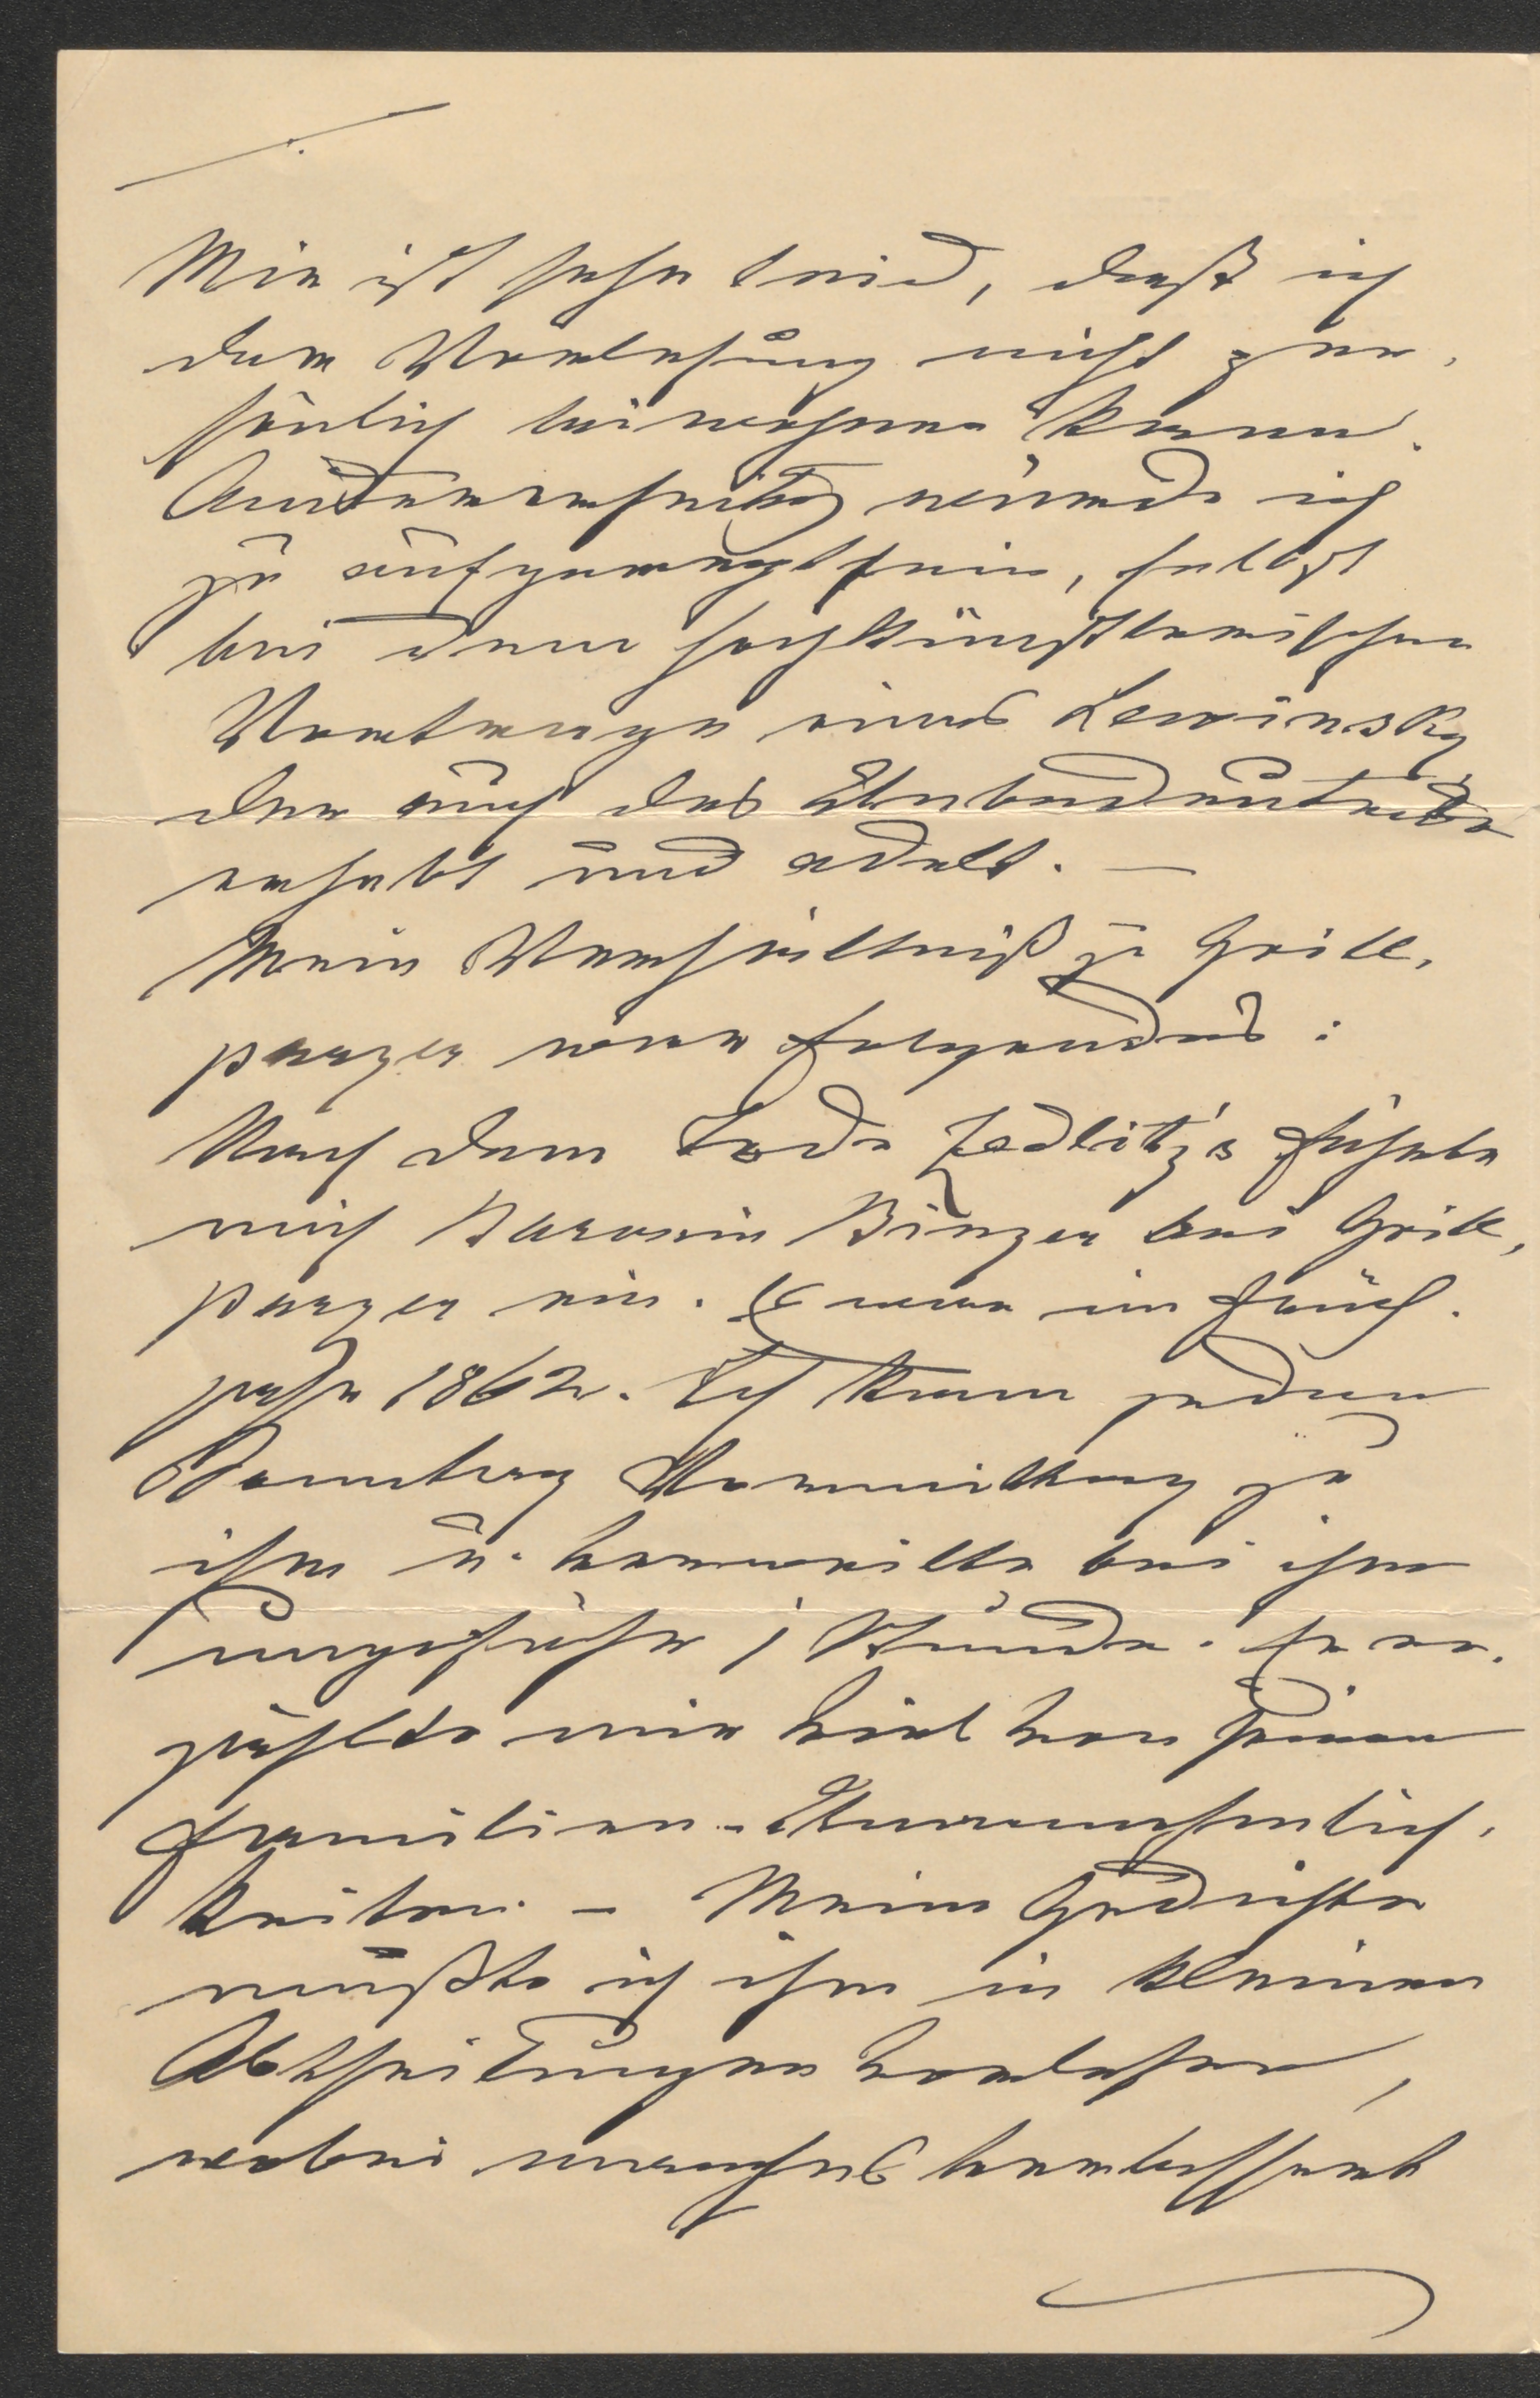 Mir ist sehr leid, daß ich
der Vorlesung nicht per-
sönlich beiwohnen kann.
Andererseits würde ich
zu aufgeregt sein, selbst
bei dem hochkünstlerischen
Vortrage eines Lewinsky,
der auch das Unbedeutende
erhebt und adelt. —
Mein Verhältniß zu Grill-
parzer war folgendes:
Nach dem Tode Zedlitz's führte
mich Baronin Binzer bei Grill-
parzer ein. Es war im Früh-
jahr 1862. Ich kam jeden
Sonntag Vormittag zu
ihm u. verweilte bei ihm
ungefähr 1 Stunde. Er er-
zählte mir viel von seinen
Familien-Unannehmlich-
keiten. – Meine Gedichte
mußte ich ihm in kleinen
Abtheilungen vorlesen,
wobei manches verbessert